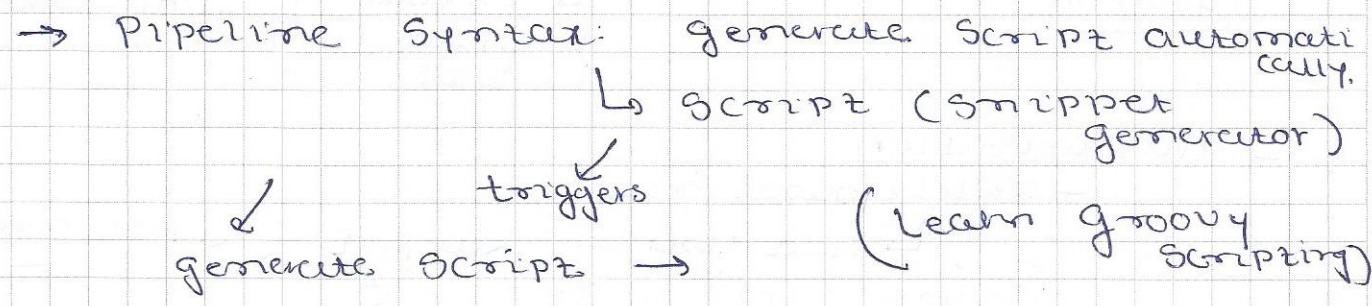 → Pipeline Syntax: generate Script automati
cally.
↳ Script (Snippet
generator)
↙ triggers
(Learn groovy
Scripting)
↙ generate Script →